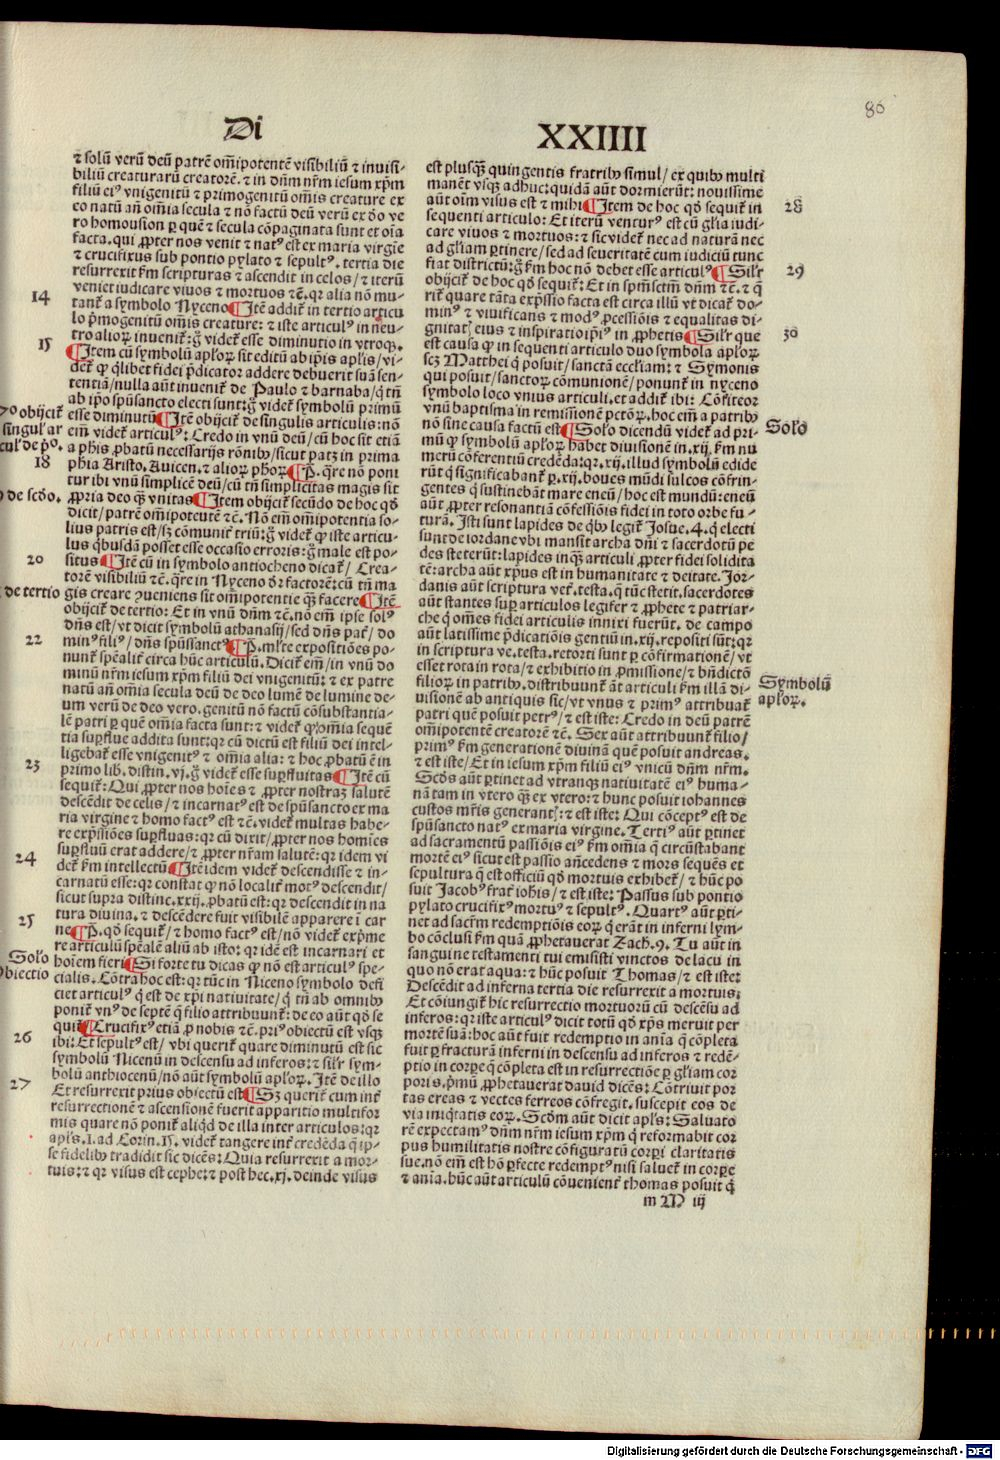 86
Di XXIIII
⁊ solũ verũ deũ patrẽ om̃ipotentẽ visibiliũ ⁊ inuisi-
biliũ creaturarũ creatorẽ. ⁊ in dñm nr̃m iesum xp̃m
filiũ eiꝰ vnigenitũ ⁊ primogenitũ om̃is creature ex
eo natũ añ om̃ia secula ⁊ nõ factũ deũ verũ ex ðo ve
ro homousion ꝑ quẽ ⁊ secula cõpaginata sunt et oĩa
facta. qui ꝓpter nos venit ⁊ natꝰ est ex maria virgĩe
⁊ crucifixus sub pontio pylato ⁊ sepultꝰ. tertia die
resurrexit ẜm scripturas ⁊ ascendit in celos / ⁊ iterũ
veniet iudicare viuos ⁊ mortuos ⁊c̃. qr alia nõ mu-
14
tant̃ a symbolo Nyceno ¶ Itẽ addit̃ in tertio articu
lo p̃mogenitũ om̃is creature: ⁊ iste articulꝰ in neu-
tro alioꝝ inuenit̃: g̃ videt̃ esse diminutio in vtroqꝫ.
15
¶ Item cũ symbolũ apl̃oꝝ sit editũ ab ip̃is apl̃is / vi-
det̃ ꝙ qlibet fidei p̃dicator addere debuerit suã sen-
tentiã / nulla aũt inuenit̃ de Paulo ⁊ barnaba / q̃ tñ
ab ip̃o sp̃usancto electi sunt: g̃ videt̃ symbolũ primũ
17o obijcit̃
singular
cul̃ de p̃o.
esse diminutũ ¶ Itẽ obijcit̃ de singulis articulis: nõ
em̃ videt̃ articulꝰ: Credo in vnũ deũ / cũ hoc sit etiã
a ph̃is ꝓbatũ necessarijs rõnibꝰ / sicut patꝫ in prima
18
phia Aristo. Auicen. ⁊ alioꝝ ph̃oꝝ ¶ P̃. qre nõ poni
tur ibi vnũ simplicẽ deũ / cũ tñ simplicitas magis sit
de scðo.
ꝓpria deo qꝫ vnitas ¶ Item obijcit̃ secũdo de hoc qð
dicit / patrẽ om̃ipotẽtẽ ⁊c̃. Nõ em̃ om̃ipotentia so-
lius patris est / sꝫ cõmunit̃ triũ: g̃ videt̃ ꝙ iste articu-
lus qbusdã posset esse occasio erroris: g̃ male est po-
20
situs ¶ Itẽ cũ in symbolo antiocheno dicat̃ / Crea-
torẽ visibiliũ ⁊c̃. qre in Nyceno ðr factorẽ: cũ tñ ma
de tertio
gis creare ꝯueniens sit om̃ipotentie qꝫ facere ¶ Itẽ
obijcit̃ de tertio: Et in vnũ dñm ⁊c̃. nõ em̃ ipse solꝰ
dñs est / vt dicit symbolũ athanasij / sed dñs pat̃ / do
22
minꝰ filiꝰ / dñs sp̃ussanctꝰ ¶ P̃. ml̃te expositiões po-
nunt̃ sp̃ealit̃ circa hũc articulũ. Dicit̃ em̃ / in vnũ do
minũ nr̃m iesum xp̃m filiũ dei vnigenitũ: ⁊ ex patre
natũ añ om̃ia secula deũ de deo lumẽ de lumine de-
um verũ de deo vero. genitũ nõ factũ cõsubstantia-
lẽ patri ꝑ quẽ om̃ia facta sunt: ⁊ videt̃ ꝙ om̃ia sequẽ
tia suꝑflue addita sunt: qr cũ dictũ est filiũ dei intel-
ligebat̃ esse vnigenitꝰ ⁊ om̃ia alia: ⁊ hoc ꝓbatũ ẽ in
23
primo lib. distin. vj. g̃ videt̃ esse suꝑfluitas ¶ Itẽ cũ
sequit̃: Qui ꝓpter nos hoĩes ⁊ ꝓpter nostraꝫ salutẽ
descẽdit de celis / ⁊ incarnatꝰ est de sp̃usancto ex ma
ria virgine ⁊ homo factꝰ est ⁊c̃. videt̃ multas habe-
re exp̃ssiões suꝑfluas: qr cũ dixit / ꝓpter nos homĩes
suꝑfluũ erat addere / ⁊ ꝓpter nr̃am salutẽ: qr idem vi
24
det̃ ẜm intellectũ ¶ Itẽ idem videt̃ descendisse ⁊ in-
carnatũ esse: qr constat ꝙ nõ localit̃ motꝰ descendit /
sicut supra distinc. xxij. ꝓbatũ est: qr descendit in na
tura diuina. ⁊ descẽdere fuit visibilẽ apparere ĩ car
25
ne ¶ P̃. qð sequit̃ / ⁊ homo factꝰ est / nõ videt̃ exp̃me
re articulũ sp̃ealẽ aliũ ab isto: qr idẽ est incarnari et
Solo
obiectio
hoĩem fieri ¶ Si forte tu dicas ꝙ nõ est articulꝰ spe-
cialis. Cõtra hoc est: qr tũc in Niceno symbolo defi
ciet articulꝰ q̃ est de xp̃i natiuitate / q̃ tñ ab omnibꝰ
ponit̃ vnꝰ de septẽ q̃ filio attribuunt̃: de eo aũt qð se
quit̃ ¶ Crucifixꝰ etiã ꝓ nobis ⁊c̃. priꝰ obiectũ est vsqꝫ
26
ibi: Et sepultꝰ est / vbi querit̃ quare diminutũ est sic
symbolũ Nicenũ in descensu ad inferos: ⁊ silr̃ sym-
bolũ anthiocenũ / nõ aũt symbolũ apl̃oꝝ. Itẽ de illo
27
Et resurrexit prius obiectũ est ¶ Sꝫ querit̃ cum int̃
resurrectionẽ ⁊ ascensionẽ fuerit apparitio multifor
mis quare nõ ponit̃ aliqd de illa inter articulos: qr
apl̃s. 1. ad Corin. 15. videt̃ tangere int̃ credẽda q̃ ip-
se fidelibꝰ tradidit sic dicẽs: Quia resurrexit a mor-
tuis: ⁊ qr visus est cephe: ⁊ post hec. xj. deinde visus
est plusqꝫ quingentis fratribꝰ simul / ex quibꝰ multi
manẽt vsqꝫ adhuc: quidã aũt dormierũt: nouissime
28
aũt oĩm visus est ⁊ mihi ¶ Item de hoc qð sequit̃ in
sequenti articulo: Et iterũ venturꝰ est cũ gl̃ia iudi-
care viuos ⁊ mortuos: ⁊ sic videt̃ nec ad naturã nec
ad gl̃iam ꝑtinere / sed ad seueritatẽ cum iudiciũ tunc
29
fiat districtũ: g̃ ẜm hoc nõ debet esse articulꝰ ¶ Silr̃
obijcit̃ de hoc qð sequit̃: Et in sp̃m sctm̃ dñm ⁊c̃. ⁊ q̃
rit̃ quare tãta exp̃ssio facta est circa illũ vt dicat̃ do-
minꝰ ⁊ viuificans ⁊ modꝰ ꝓcessiõis ⁊ equalitas di-
30
gnitatꝭ eius ⁊ inspiratio ip̃iꝰ in ꝓphetis ¶ Silr̃ que
est causa ꝙ in sequenti articulo duo symbola apl̃oꝝ
scꝫ Matthei q̃ posuit / sanctã eccl̃iam: ⁊ Symonis
qui posuit / sanctoꝝ cõmunionẽ / ponunt̃ in nyceno
symbolo loco vnius articuli. et addit̃ ibi: Cõfiteor
vnũ baptisma in remissionẽ pctõꝝ. hoc em̃ a patribꝰ
Solo
nõ sine causa factũ est ¶ Solo dicendũ videt̃ ad pri-
mũ ꝙ symbolũ apl̃oꝝ habet diuisionẽ in. xij. ẜm nu
merũ cõferentiũ credẽda: qr. xij. illud symbolũ edide
rũt q̃ significabant̃ ꝑ. xij. boues mũdi sulcos cõfrin-
gentes q̃ sustinebãt mare eneũ / hoc est mundũ: eneũ
aũt ꝓpter resonantiã cõfessiõis fidei in toto orbe fu-
turã. Isti sunt lapides de q̃bꝰ legit̃ Josue. 4. q̃ electi
sunt de iordane vbi mansit archa dñi ⁊ sacerdotũ pe
des steterũt: lapides inqꝫ articuli ꝓpter fidei solidita
tẽ: archa aũt xp̃us est in humanitate ⁊ deitate. Jor-
danis aũt scriptura vet̃. testa. q̃ tũc stetit. sacerdotes
aũt stantes suꝑ articulos legifer ⁊ ꝓphete ⁊ patriar-
che q̃ omẽs fidei articulis innixi fuerũt. de campo
aũt latissime p̃dicatiõis gentiũ in. xij. repositi sũt: qr
in scriptura ve. testa. retorti sunt ꝑ cõfirmationẽ / vt
esset rota in rota / ⁊ exhibitio in ꝓmissione / ⁊ bñdictõ
Symbolũ
apl̃oꝝ.
filioꝝ in patribꝰ. distribuunt̃ ãt articuli ẜm illã di-
uisionẽ ab antiquis sic / vt vnus ⁊ primꝰ attribuat̃
patri quẽ posuit petrꝰ / ⁊ est iste: Credo in deũ patrẽ
om̃ipotentẽ creatorẽ ⁊c̃. Sex aũt attribuunt̃ filio /
primꝰ ẜm generationẽ diuinã quẽ posuit andreas.
⁊ est iste / Et in iesum xp̃m filiũ eiꝰ vnicũ dñm nr̃m.
Scðs aũt ꝑtinet ad vtranqꝫ natiuitatẽ eiꝰ huma-
nã tam in vtero qꝫ ex vtero: ⁊ hunc posuit iohannes
custos mr̃is generantꝭ: ⁊ est iste: Qui cõceptꝰ est de
sp̃usancto natꝰ ex maria virgine. Tertiꝰ aũt ꝑtinet
ad sacramentũ passiõis eiꝰ ẜm om̃ia q̃ circũstabant
mortẽ eiꝰ sicut est passio añcedens ⁊ mors sequẽs et
sepultura q̃ est officiũ qð mortuis exhibet̃ / ⁊ hũc po
suit Jacobꝰ frat̃ ioh̃is / ⁊ est iste: Passus sub pontio
pylato crucifixꝰ mortuꝰ ⁊ sepultꝰ. Quartꝰ aũt ꝑti-
net ad sacr̃m redemptiõis eoꝝ q̃ erãt in inferni lym-
bo cõclusi ẜm quã ꝓphetauerat Zach. 9. Tu aũt in
sanguine testamenti tui emisisti vinctos de lacu in
quo nõ erat aqua: ⁊ hũc posuit Thomas / ⁊ est iste:
Descẽdit ad inferna tertia die resurrexit a mortuis:
Et cõiungit̃ hic resurrectio mortuorũ cũ descẽsu ad
inferos: qr iste articulꝰ dicit totũ qð xp̃s meruit per
mortẽ suã: hoc aũt fuit redemptio in anĩa q̃ cõpleta
fuit ꝑ fracturã inferni in descensu ad inferos ⁊ redẽ-
ptio in corꝑe q̃ cõpleta est in resurrectiõe ꝑ gl̃iam cor
poris. p̃mũ ꝓphetauerat dauid dicẽs: Cõtriuit por
tas ereas ⁊ vectes ferreos cõfregit. suscepit eos de
via iniqtatis eoꝝ. Scðm aũt dicit apl̃s: Saluato
rẽ expectamꝰ dñm nr̃m iesum xp̃m q̃ reformabit cor
pus humilitatis nostre cõfiguratũ corꝑi claritatis
sue. nõ em̃ est hõ ꝑfecte redemptꝰ nisi saluet̃ in corꝑe
⁊ anĩa. hũc aũt articulũ cõuenient̃ thomas posuit q̃
m M iij
Digitalisierung gefördert durch die Deutsche Forschungsgemeinschaft - DFG